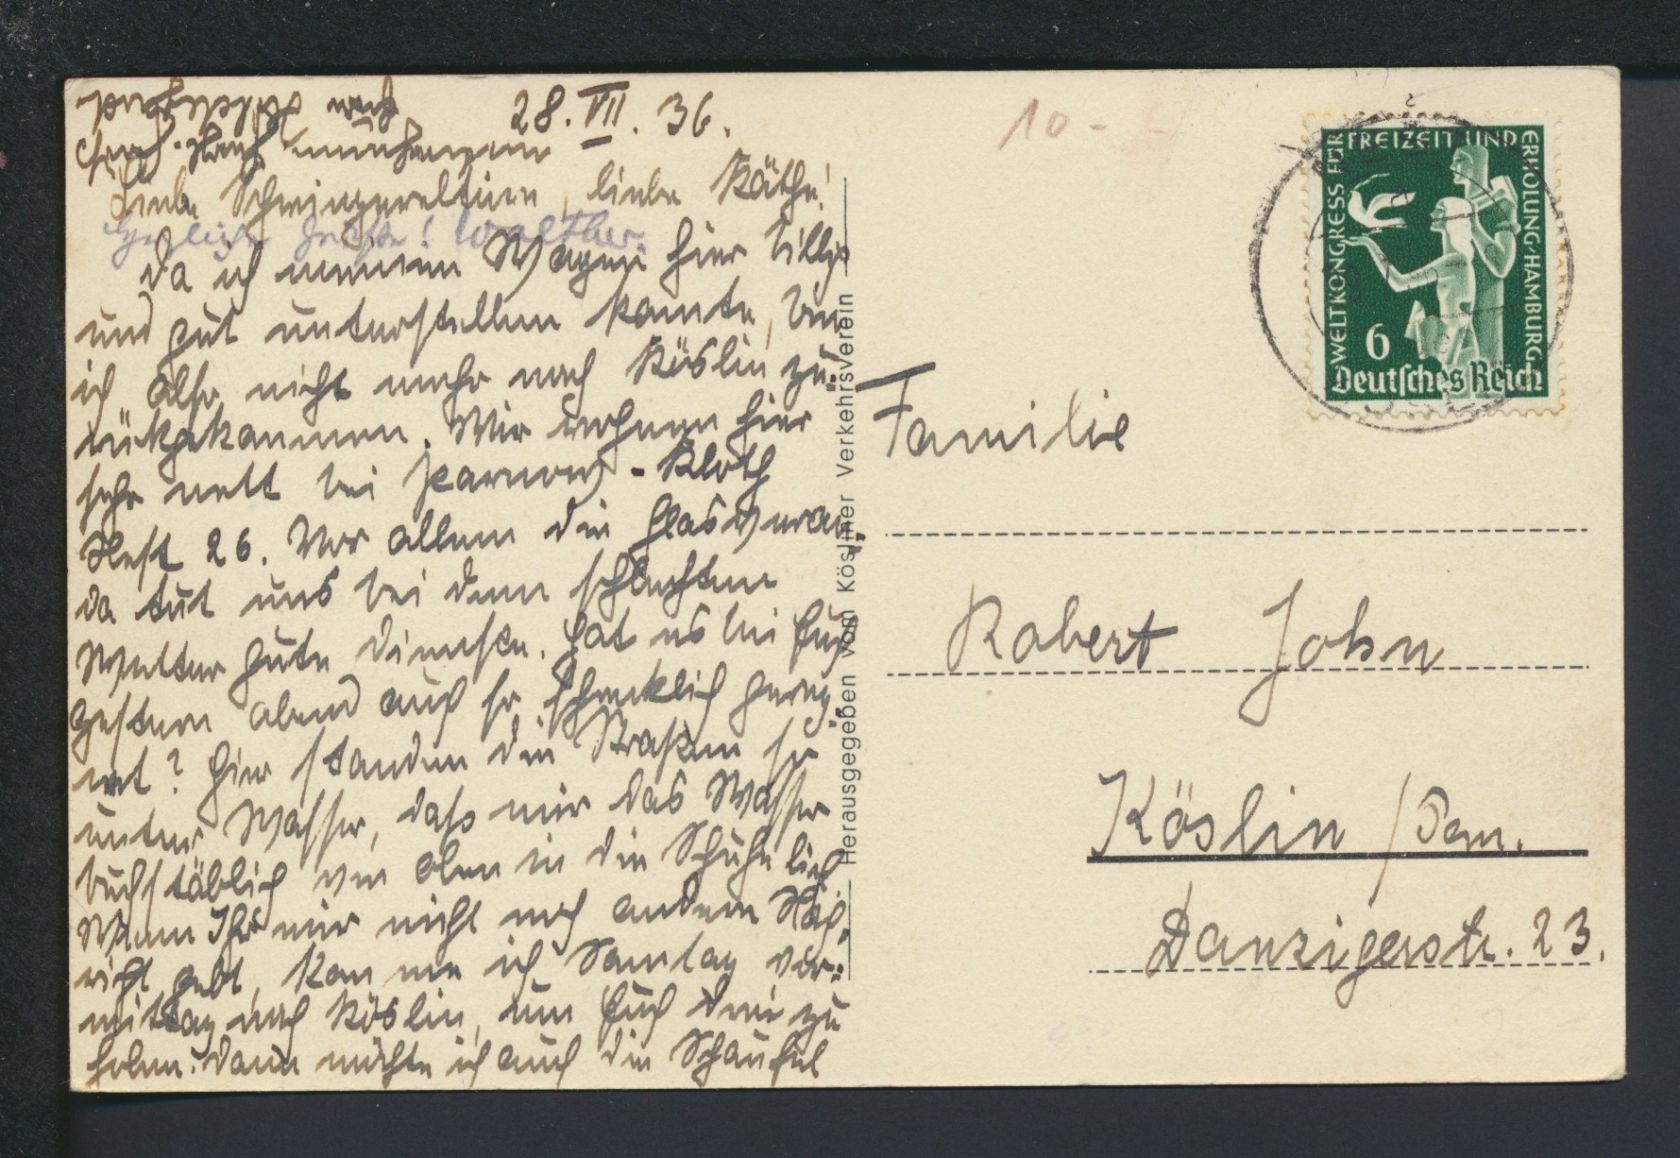 28. VII. 36.
Liebe Schwiegereltern, liebe Käthe!
Herzliche Grüße! Walther
Da ich meinen Wagen hier billig
und gut unterstellen konnte, bin
ich also nicht mehr nach Köslin zu-
rückgekommen. Wir wohnen hier
sehr nett bei Parnow-Kloth
26. Vor allem die Glasveran-
da tut uns bei dem schlechten
Wetter gute Dienste. Hat es bei Euch
gestern abend auch so schrecklich gereg-
net? Hier standen die Straßen so
unter Wasser, dass mir das Wasser
buchstäblich von oben in die Schuhe lief
Wenn Ihr mir nicht noch andere Nach-
richt gebt, komme ich Sonntag vor-
mittag nach Köslin, um Euch drei zu
holen. Dann möchte ich auch die Schaufel
Herausgegeben vom Kösliner Verkehrsverein
10-
WELTKONGRESS FÜR FREIZEIT UND ERHOLUNG·HAMBURG
6
Deutsches Reich
Familie
Robert John
Köslin /Pom.
Danzigerstr. 23.